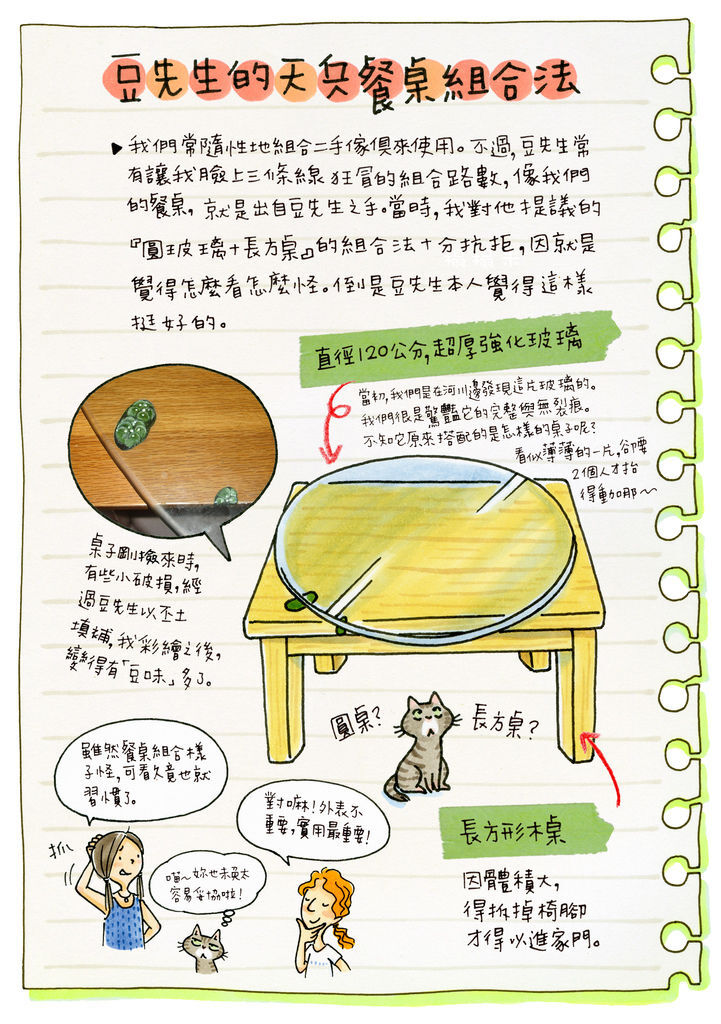 豆先生的天兵餐桌組合法
▶我們常隨性地組合二手傢俱來使用。不過,豆先生常
有讓我臉上三條線 狂冒的組合路數,像我們
的餐桌,就是出自豆先生之手。當時,我對他提議的
『圓玻璃+長方桌』的組合法十分抗拒,因就是
覺得怎麼看怎麼怪。倒是豆先生本人覺得這樣
挺好的。
直徑120公分,超厚強化玻璃
當初,我們是在河川邊發現這片玻璃的。
我們很是驚豔它的完整與無裂痕。
不知它原來搭配的是怎樣的桌子呢?
看似薄薄的一片,卻要
2個人才抬
得動加那~
桌子剛撿來時,
有些小破損,經
過豆先生以丕土
填補,我彩繪之後,
變得有「豆味」多了。
圓桌?
長方桌?
長方形木桌
因體積大,
得拆掉椅腳
才得以進家門。
雖然餐桌組合樣
子怪,可看久竟也就
習慣了。
抓
對嘛!外表不
重要,實用最重要!
喵~妳也未免太
容易妥協啦!